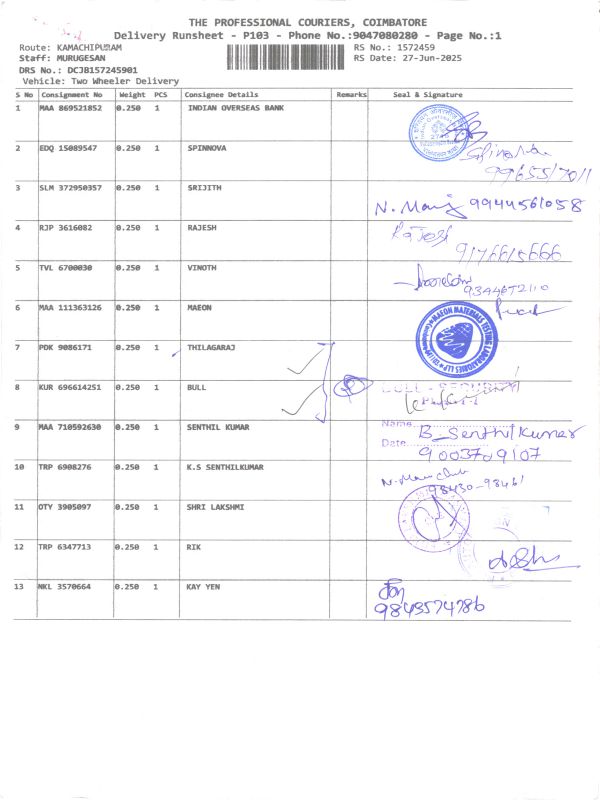 THE PROFESSIONAL COURIERS, COIMBATORE
Delivery Runsheet - P103 - Phone No.:9047080280 - Page No.:1
Route: KAMACHIPURAM RS No.: 1572459
Staff: MURUGESAN RS Date: 27-Jun-2025
DRS No.: DCJ8157245901
Vehicle: Two Wheeler Delivery
S No Consignment No Weight PCS Consignee Details Remarks Seal & Signature
1 MAA 869521852 0.250 1 INDIAN OVERSEAS BANK
2 EDQ 15089547 0.250 1 SPINNOVA
3 SLM 372950357 0.250 1 SRIJITH
N. Mani 9944561058
4 RJP 3616082 0.250 1 RAJESH
Rajesh
9176615666
5 TVL 6700030 0.250 1 VINOTH
9344672110
6 MAA 111363126 0.250 1 MAEON
MAEON MATERIALS TESTING LABORATORIES LLP
7 PDK 9086171 0.250 1 THILAGARAJ
8 KUR 696614251 0.250 1 BULL
BULL - SECURITY
9 MAA 710592630 0.250 1 SENTHIL KUMAR
Name B_Senthil Kumar
Date 9003709107
10 TRP 6908276 0.250 1 K.S SENTHILKUMAR
98430-98461
11 OTY 3905097 0.250 1 SHRI LAKSHMI
12 TRP 6347713 0.250 1 RIK
13 NKL 3570664 0.250 1 KAY YEN
9843574786